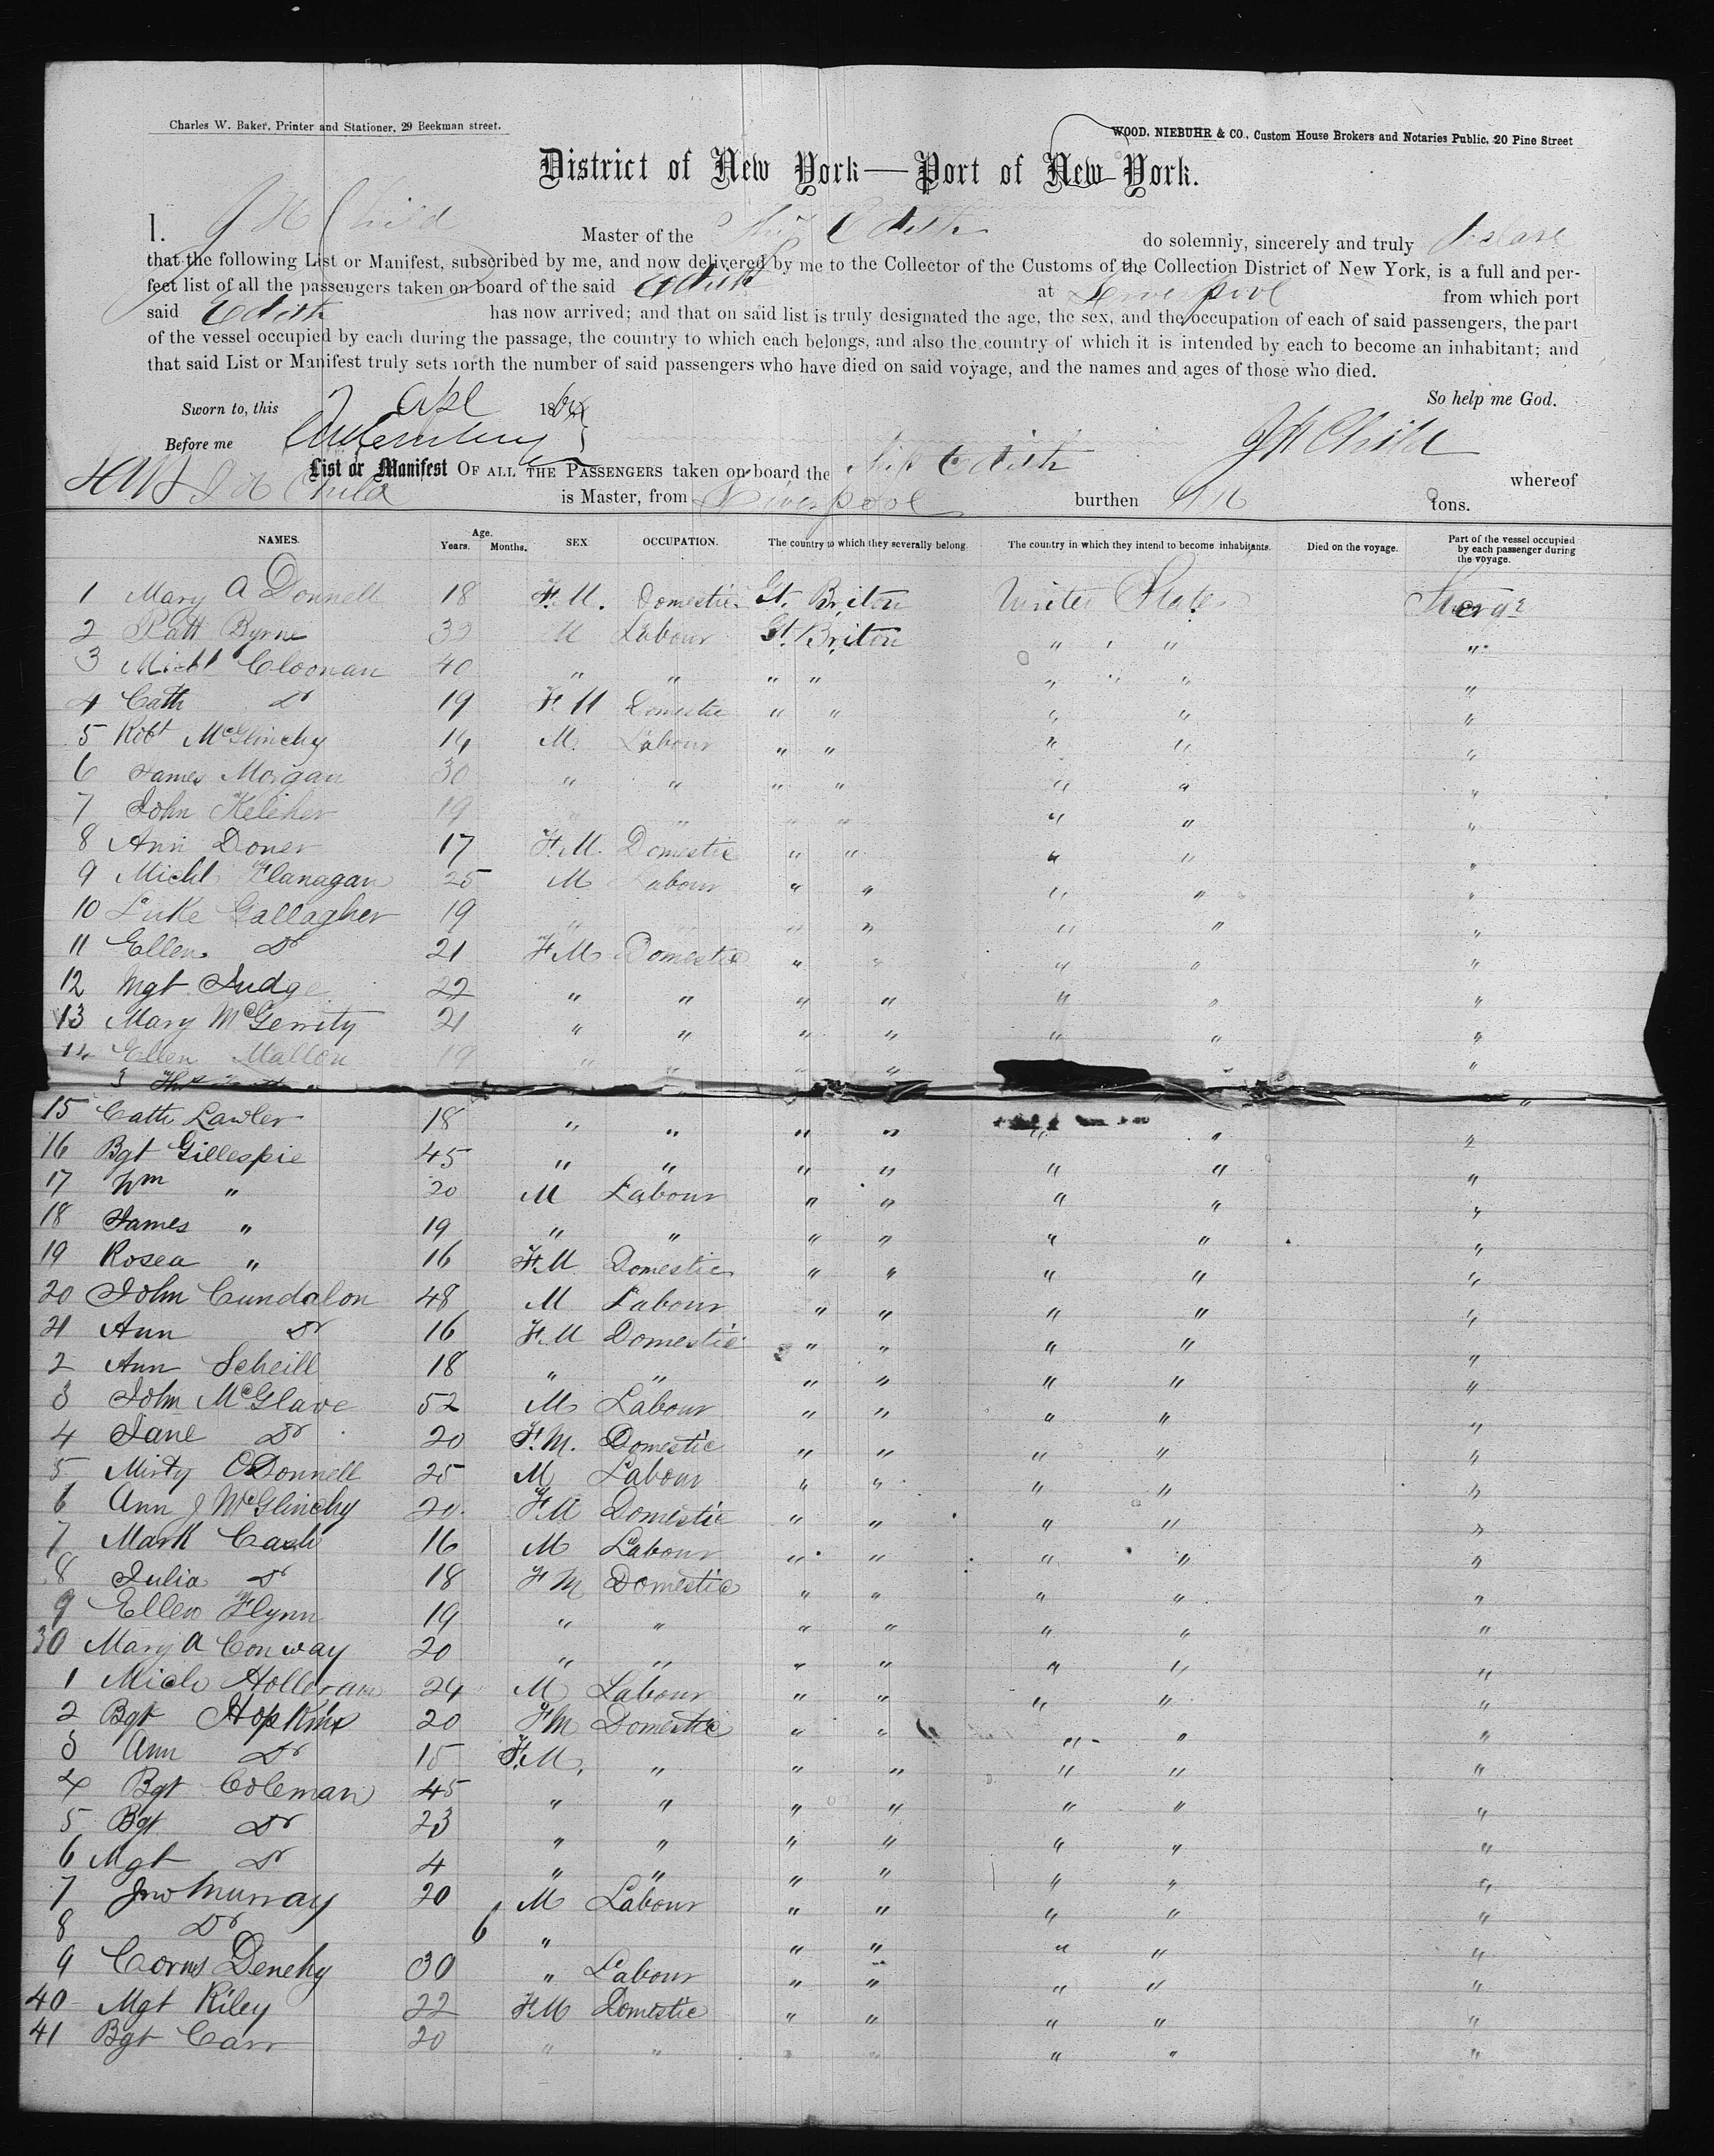 Charles W. Baker, Printer and Stationer, 29 Beekman street.
WOOD, NIEBUHR & CO., Custom House Brokers and Notaries Public, 20 Pine Street
District of New York—Port of New York.
I. J H Child Master of the Ship Edith do solemnly, sincerely and truly declare
that the following List or Manifest, subscribed by me, and now delivered by me to the Collector of the Customs of the Collection District of New York, is a full and per-
fect list of all the passengers taken on board of the said Edith at Liverpool from which port
said Edith has now arrived; and that on said list is truly designated the age, the sex, and the occupation of each of said passengers, the part
of the vessel occupied by each during the passage, the country to which each belongs, and also the country of which it is intended by each to become an inhabitant; and
that said List or Manifest truly sets forth the number of said passengers who have died on said voyage, and the names and ages of those who died.
So help me God.
Sworn to, this 7 Apl 186
Before me J H Child
List or Manifest OF ALL THE PASSENGERS taken on board the Ship Edith whereof
J H Child is Master, from Liverpool burthen tons.
NAMES. Age. Years. Months. SEX OCCUPATION. The country to which they severally belong. The country in which they intend to become inhabitants. Died on the voyage. Part of the vessel occupied by each passenger during the voyage.
1 Mary A Donnell 18 F.M. Domestic Gt. Briton United States Steerge
2 Patt Byrne 32 M Labour Gt. Briton " " "
3 Michl Cloonan 40 " " " " " " "
4 Cath Do 19 F.M Domestic " " " " "
5 Robt McGlinchy 14 M. Labour " " " " "
6 James Morgan 30 " " " " " " "
7 John Keleher 19 " " " " " " "
8 Ann Doner 17 F.M. Domestic " " " " "
9 Michl Flanagan 25 M Labour " " " " "
10 Luke Gallagher 19 " " " " " " "
11 Ellen Do 21 F.M Domestic " " " " "
12 Mgt Judge 22 " " " " " " "
13 Mary McGerrity 21 " " " " " " "
14 Ellen Mallon 19 " " " " " " "
15 Cath Lawler 18 " " " " " " "
16 Bgt Gillespie 45 " " " " " " "
17 Wm " 20 M Labour " " " " "
18 James " 19 " " " " " " "
19 Rosea " 16 F.M Domestic " " " " "
20 John Cundalon 48 M Labour " " " " "
21 Ann Do 16 F.M Domestic " " " " "
2 Ann Scheill 18 " " " " " " "
3 John McGlave 52 M Labour " " " " "
4 Jane Do 20 F.M. Domestic " " " " "
5 Misty ODonnell 25 M Labour " " " " "
6 Ann J McGlinchy 20 F.M Domestic " " " " "
7 Mark Cash 16 M Labour " " " " "
8 Julia Do 18 F M Domestic " " " " "
9 Ellen Flynn 19 " " " " " " "
30 Mary A Conway 20 " " " " " " "
1 Mich Holloran 24 M Labour " " " " "
2 Bgt Hopkins 20 F M Domestic " " " " "
3 Ann Do 15 F.M. " " " " " "
4 Bgt Coleman 45 " " " " " " "
5 Bgt Do 23 " " " " " " "
6 Mgt Do 4 " " " " " " "
7 Jno Murray 20 M Labour " " " " "
8 Do 6 " " " " " "
9 Corns Denehy 30 " Labour " " " " "
40 Mgt Riley 22 F.M Domestic " " " " "
41 Bgt Carr 20 " " " " " " "